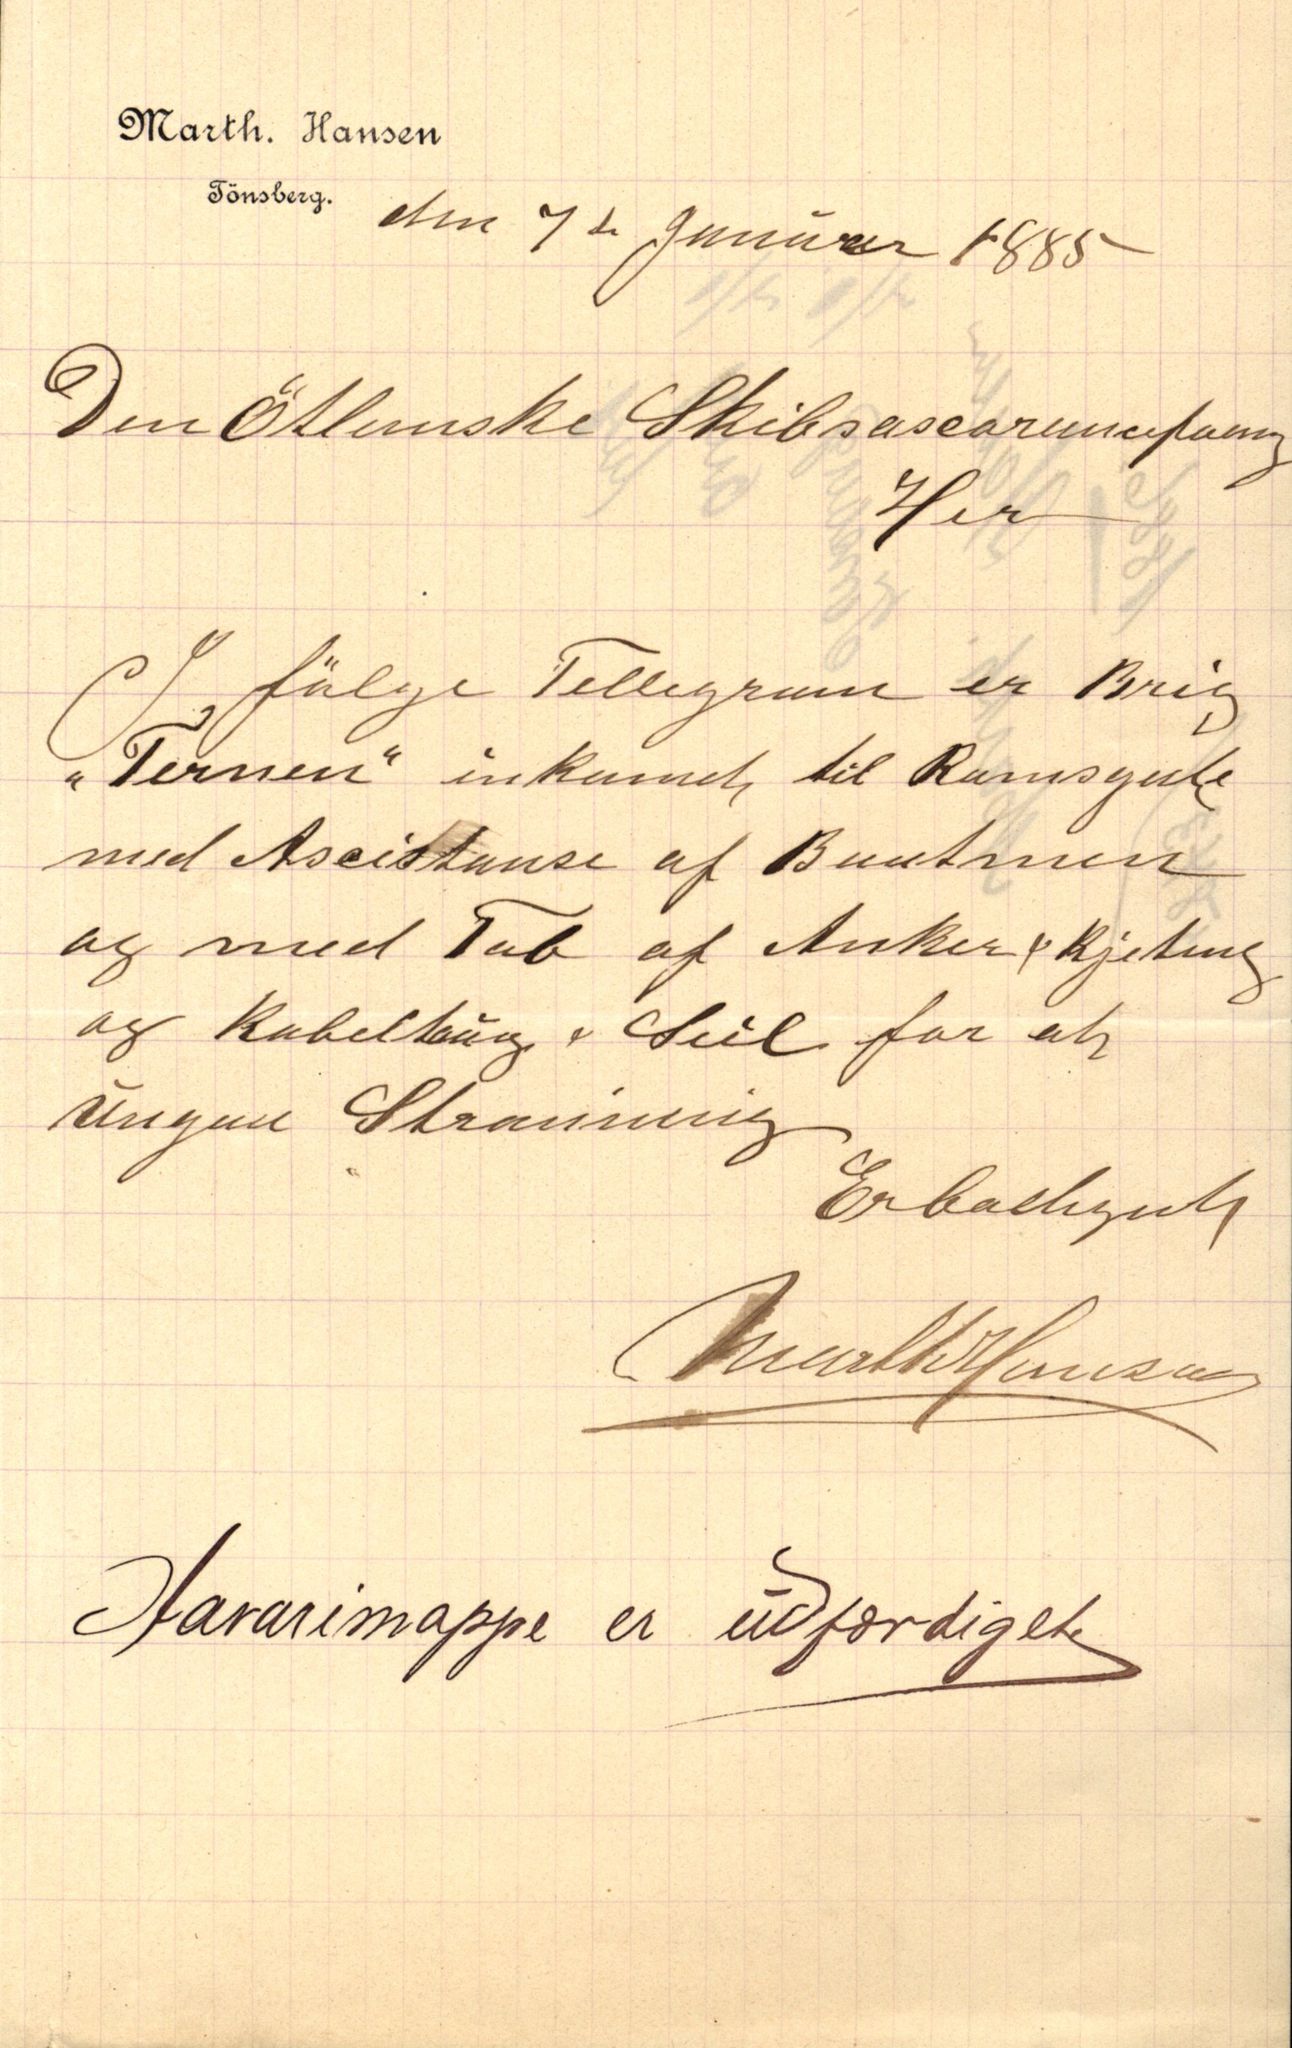 Marth. Hansen
Tönsberg.
den 7de Januar 1885
Den Östlanske Skibsascoranceforeng
Her
I fölge Tellegram er Brig
"Ternen" inkomet til Ramsgate
med Ascistanse af Baatmen
og med Tab af Anker & Kjeting
og Kabeltaug & Seil for at
ungaa Stranning
Erbødigst
Marth Hansen
Havarimappe er udfærdiget